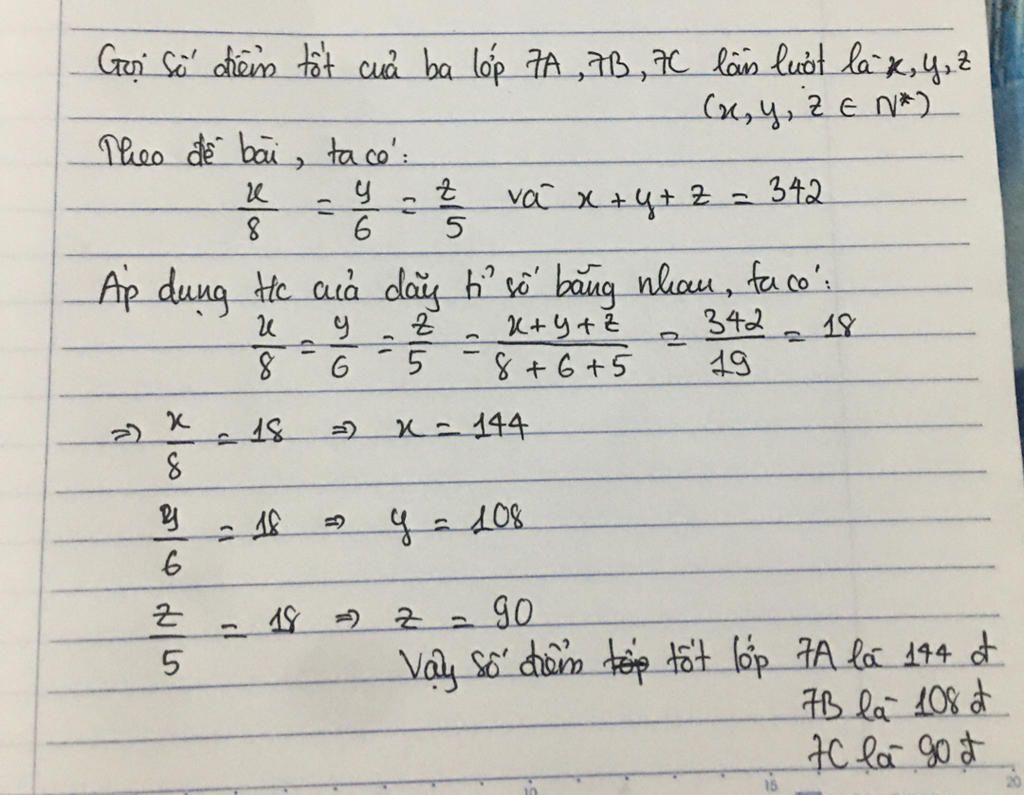 Gọi số điểm tốt của ba lớp 7A, 7B, 7C lần lượt là x, y, z
(x, y, z ∈ N*)
Theo đề bài, ta có:
x/8 = y/6 = z/5 và x + y + z = 342
Áp dụng t/c của dãy tỉ số bằng nhau, ta có:
x/8 = y/6 = z/5 = x+y+z/8+6+5 = 342/19 = 18
⇒ x/8 = 18 ⇒ x = 144
y/6 = 18 ⇒ y = 108
z/5 = 18 ⇒ z = 90
Vậy số điểm tốt lớp 7A là 144 đ
7B là 108 đ
7C là 90 đ
10 15 20